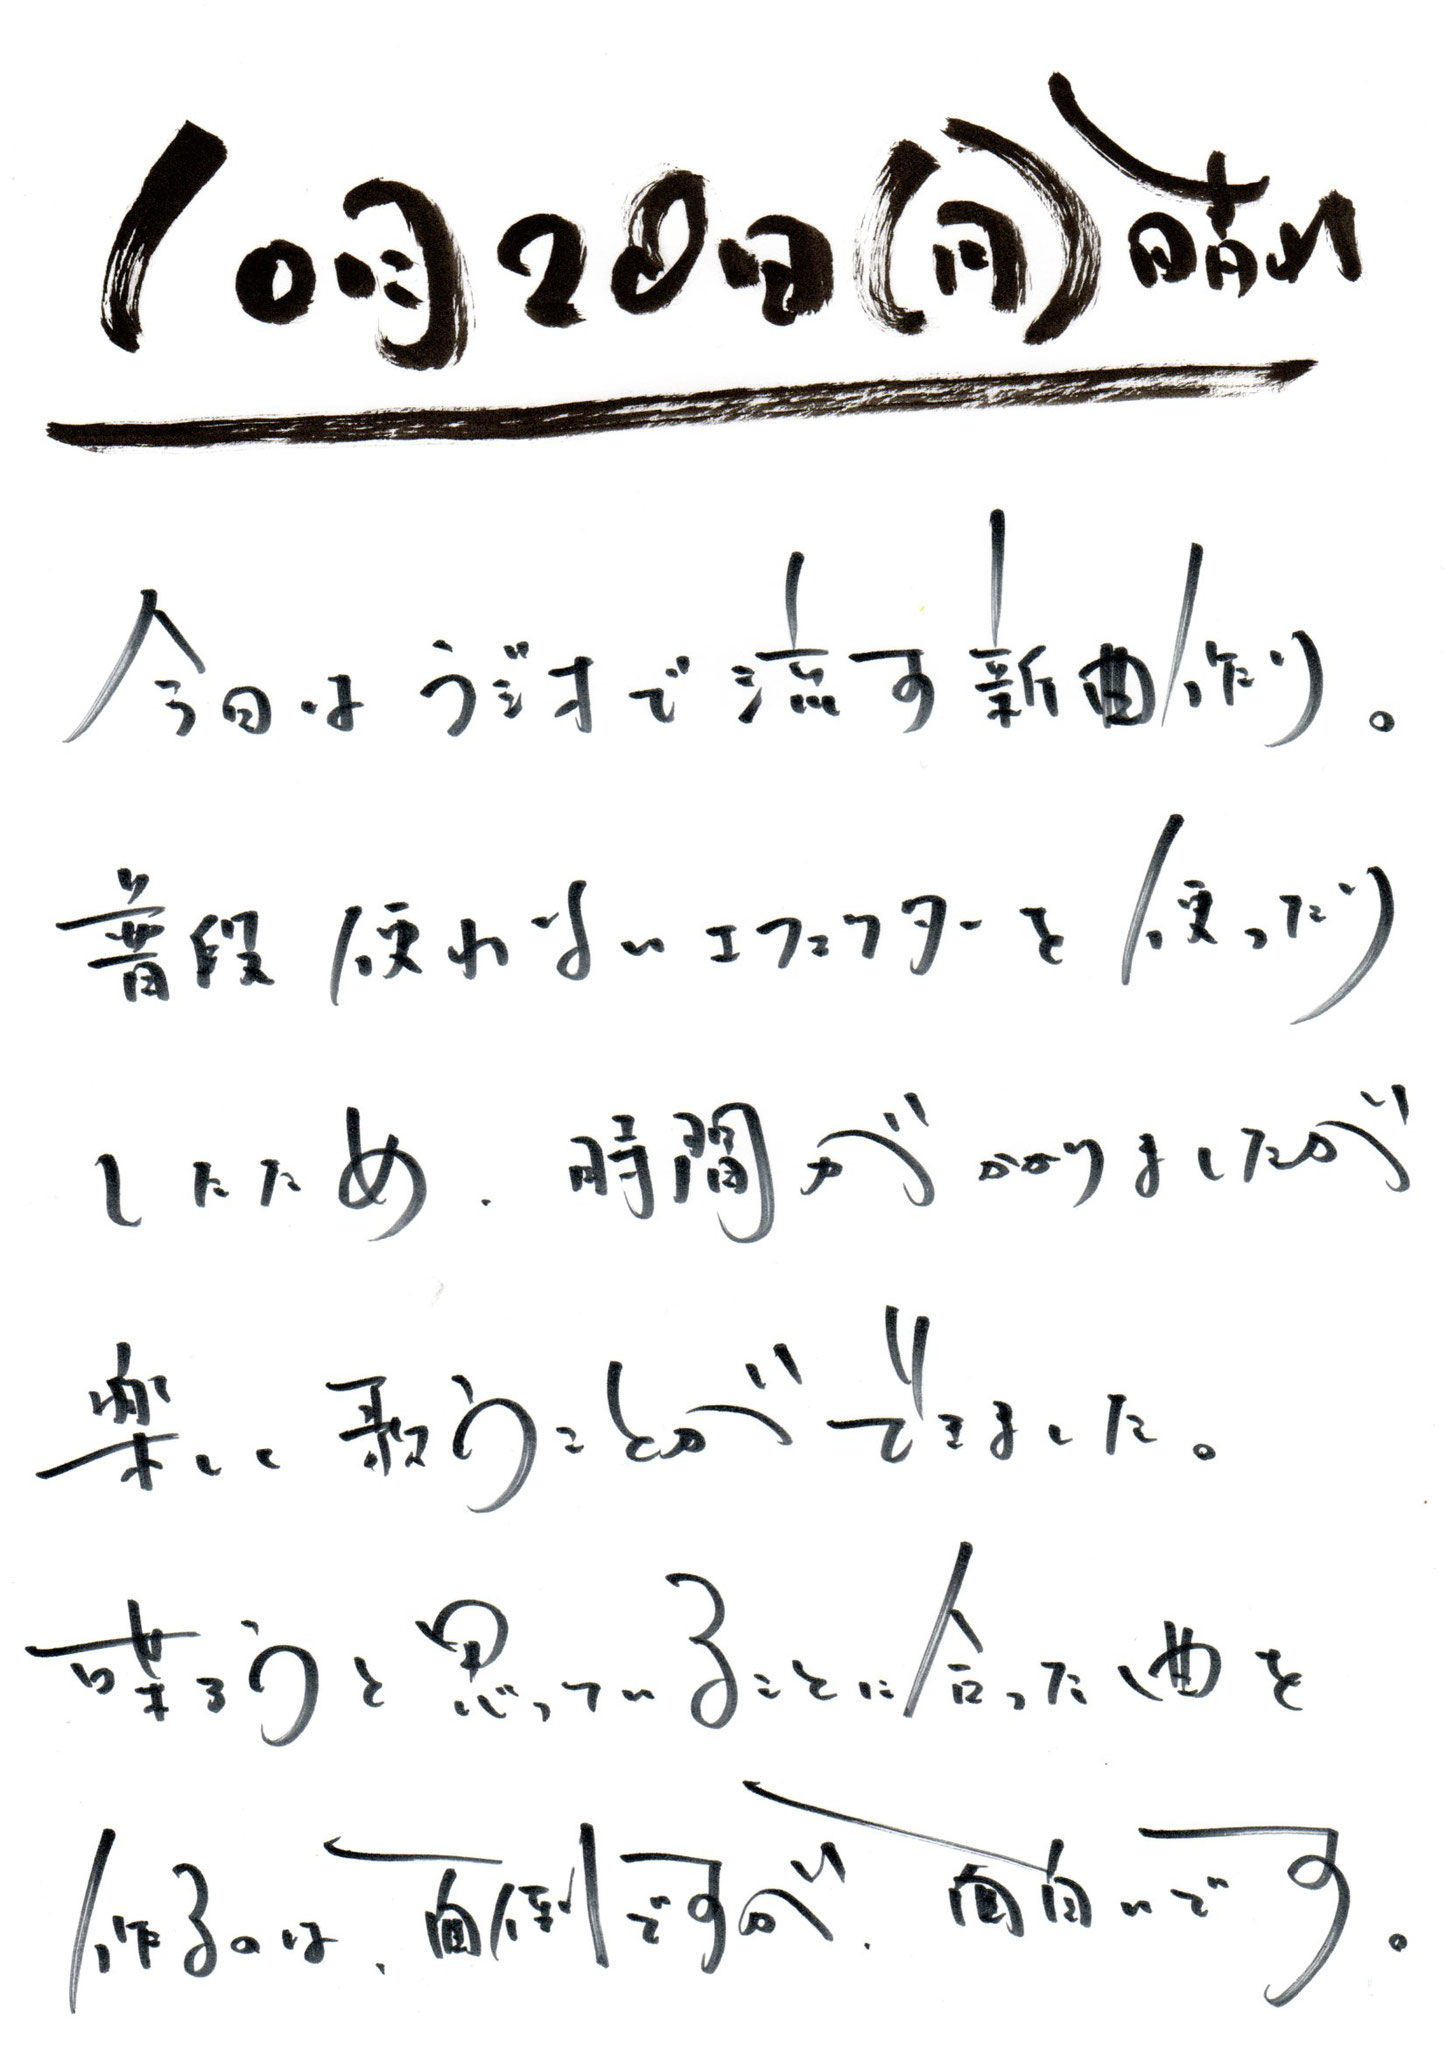 10月28日(月)晴れ
今日はラジオで流す新曲作り。
普段使わないエフェクターを使ったり
したため、時間がかかりましたが
楽しく歌うことができました。
喋ろうと思っていることに合った曲を
作るのは、面倒ですが、面白いです。